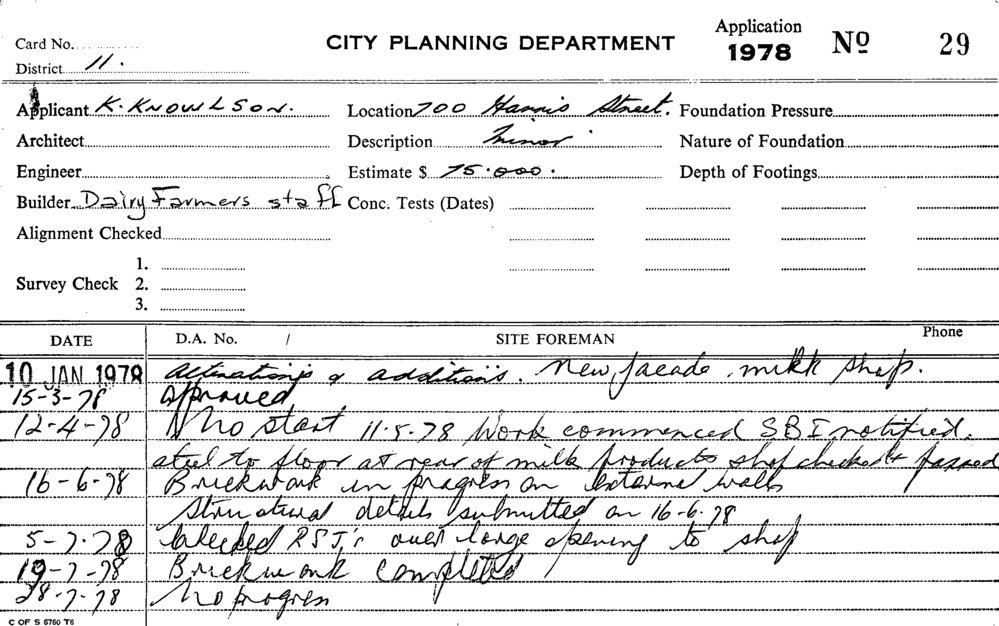 Card No.
CITY PLANNING DEPARTMENT
Application 1978 No 29
District 11.
Applicant K. KNOWLSON. Location 700 Harris Street. Foundation Pressure
Architect Description Minor Nature of Foundation
Engineer Estimate $ 75.000. Depth of Footings
Builder Dairy Farmers staff Conc. Tests (Dates)
Alignment Checked
1.
Survey Check 2.
3.
DATE D.A. No. / SITE FOREMAN Phone
10 JAN 1978 alterations & additions. New facade milk shop.
15-3-78 approved
12-4-78 No start 11.5.78 Work commenced SBI notified.
steel to floor at rear of milk products shop checked & passed
16-6-78 Brickwork in progress on external walls
Structural details submitted on 16-6-78
5-7-78 checked RSJ's over large opening to shop
19-7-78 Brickwork completed
28-7-78 No progress
C OF S 6760 T6